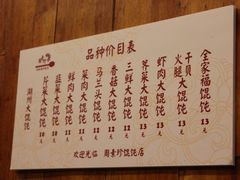 品种价目表
全家福馄饨 13元
干贝火腿大馄饨 13元
虾肉大馄饨 13元
荠菜大馄饨 12元
三鲜大馄饨 12元
香菇大馄饨 12元
马兰头大馄饨 12元
菜肉大馄饨 10元
鲜肉大馄饨 10元
韭菜大馄饨 10元
芹菜大馄饨 10元
湖州大馄饨
欢迎光临 周素珍馄饨店